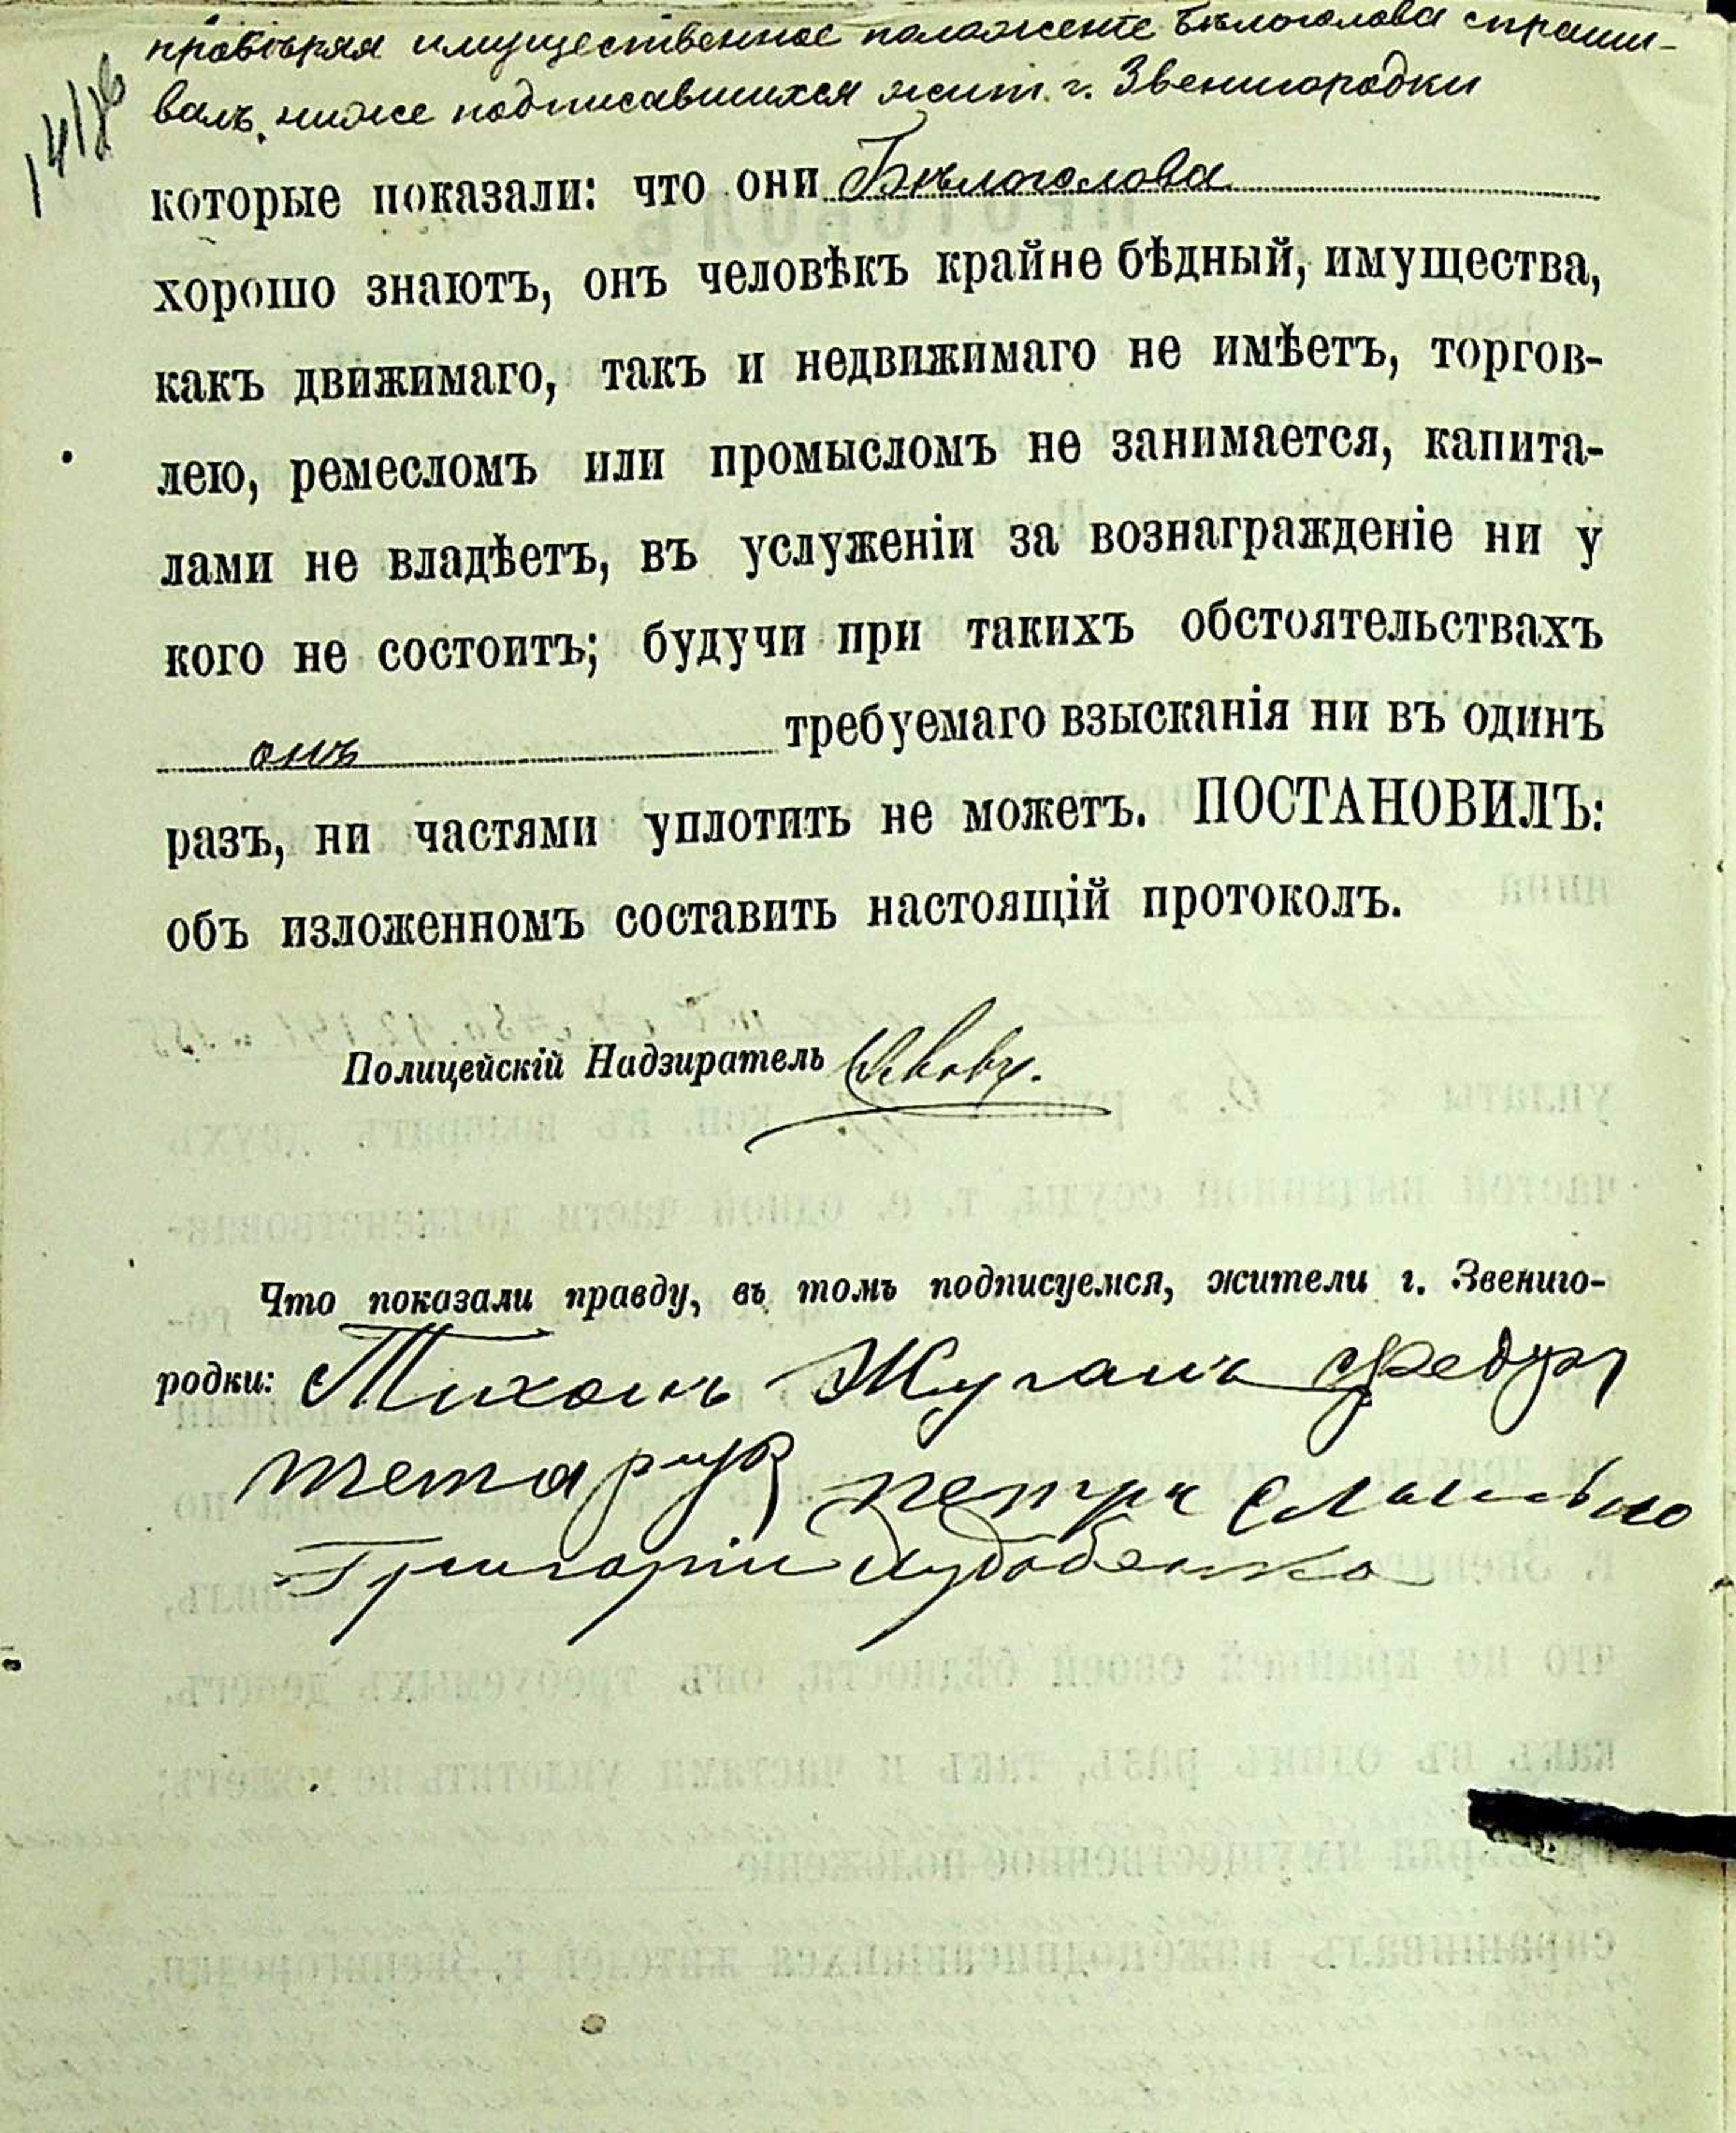 провѣряя имущественное положенiе Бѣлоголова спраши-
валъ ниже подписавшихся жит. г. Звенигородки
которые показали: что они Бѣлоголова
хорошо знаютъ, онъ человѣкъ крайне бѣдный, имущества,
какъ движимаго, такъ и недвижимаго не имѣетъ, торгов-
лею, ремесломъ или промысломъ не занимается, капита-
лами не владѣетъ, въ услуженіи за вознагражденіе ни у
кого не состоитъ; будучи при такихъ обстоятельствахъ
онъ требуемаго взысканія ни въ одинъ
разъ, ни частями уплотить не можетъ. ПОСТАНОВИЛЪ:
объ изложенномъ составить настоящій протоколъ.
Полицейскій Надзиратель
Что показали правду, въ томъ подписуемся, жители г. Звениго-
родки: Тихонъ Жуганъ Федур
тетарук петръ
Григорiи Худобенко